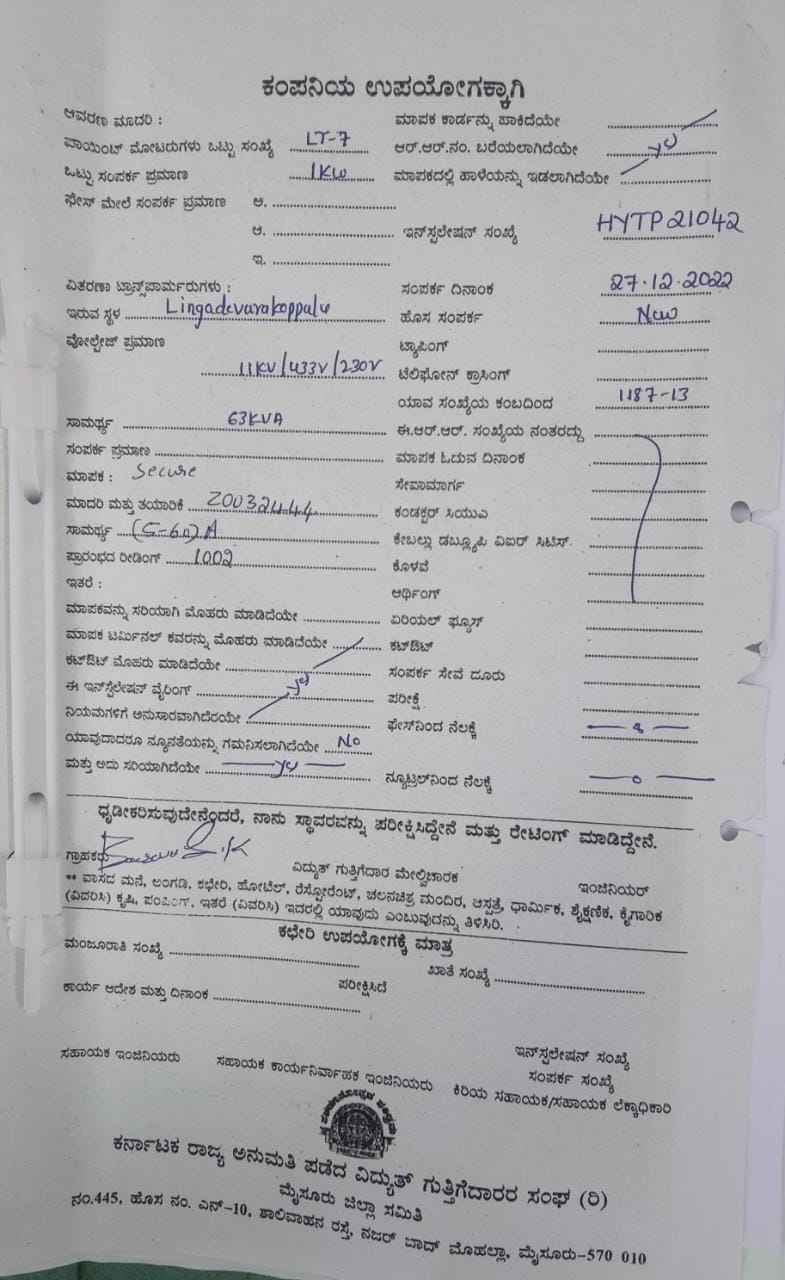 ಕಂಪನಿಯ ಉಪಯೋಗಕ್ಕಾಗಿ
ಆವರಣ ಮಾದರಿ :
ಪಾಯಿಂಟ್ ಮೋಟರುಗಳು ಒಟ್ಟು ಸಂಖ್ಯೆ LT-7
ಒಟ್ಟು ಸಂಪರ್ಕ ಪ್ರಮಾಣ 1KW
ಫೇಸ್ ಮೇಲೆ ಸಂಪರ್ಕ ಪ್ರಮಾಣ ಅ.
ಆ.
ಇ.
ವಿತರಣಾ ಟ್ರಾನ್ಸ್‌ಪಾರ್ಮರುಗಳು :
ಇರುವ ಸ್ಥಳ Lingadevarakoppalu
ವೋಲ್ಟೇಜ್ ಪ್ರಮಾಣ
11KV/433V/230V
ಸಾಮರ್ಥ್ಯ 63KVA
ಸಂಪರ್ಕ ಪ್ರಮಾಣ
ಮಾಪಕ : Secure
ಮಾದರಿ ಮತ್ತು ತಯಾರಿಕೆ Z0032444
ಸಾಮರ್ಥ್ಯ (5-60)A
ಪ್ರಾರಂಭದ ರೀಡಿಂಗ್ 1002
ಇತರೆ :
ಮಾಪಕವನ್ನು ಸರಿಯಾಗಿ ಮೊಹರು ಮಾಡಿದೆಯೇ
ಮಾಪಕ ಟರ್ಮಿನಲ್ ಕವರನ್ನು ಮೊಹರು ಮಾಡಿದೆಯೇ
ಕಟ್‌ಔಟ್ ಮೊಹರು ಮಾಡಿದೆಯೇ
ಈ ಇನ್‌ಸ್ಟಲೇಷನ್ ವೈರಿಂಗ್ yes
ನಿಯಮಗಳಿಗೆ ಅನುಸಾರವಾಗಿದೆರಯೇ
ಯಾವುದಾದರೂ ನ್ಯೂನತೆಯನ್ನು ಗಮನಿಸಲಾಗಿದೆಯೇ No
ಮತ್ತು ಅದು ಸರಿಯಾಗಿದೆಯೇ yes
ಮಾಪಕ ಕಾರ್ಡನ್ನು ಹಾಕಿದೆಯೇ
ಆರ್.ಆರ್.ನಂ. ಬರೆಯಲಾಗಿದೆಯೇ yes
ಮಾಪಕದಲ್ಲಿ ಹಾಳೆಯನ್ನು ಇಡಲಾಗಿದೆಯೇ
ಇನ್‌ಸ್ಟಲೇಷನ್ ಸಂಖ್ಯೆ HYTP21042
ಸಂಪರ್ಕ ದಿನಾಂಕ 27.12.2022
ಹೊಸ ಸಂಪರ್ಕ New
ಟ್ಯಾಪಿಂಗ್
ಟೆಲಿಫೋನ್ ಕ್ರಾಸಿಂಗ್
ಯಾವ ಸಂಖ್ಯೆಯ ಕಂಬದಿಂದ 1187-13
ಈ.ಆರ್.ಆರ್. ಸಂಖ್ಯೆಯ ನಂತರದ್ದು
ಮಾಪಕ ಓದುವ ದಿನಾಂಕ
ಸೇವಾಮಾರ್ಗ
ಕಂಡಕ್ಟರ್ ಸಿಯುಎ
ಕೇಬಲ್ಲು ಡಬ್ಲ್ಯೂಪಿ ವಿಐರ್ ಸಿಟಿಸ್.
ಕೊಳವೆ
ಆರ್ಥಿಂಗ್
ಏರಿಯಲ್ ಫ್ಯೂಸ್
ಕಟ್‌ಔಟ್
ಸಂಪರ್ಕ ಸೇವೆ ದೂರು
ಪರೀಕ್ಷೆ
ಫೇಸ್‌ನಿಂದ ನೆಲಕ್ಕೆ
ನ್ಯೂಟ್ರಲ್‌ನಿಂದ ನೆಲಕ್ಕೆ —o—
ಧೃಡೀಕರಿಸುವುದೇನೆಂದರೆ, ನಾನು ಸ್ಥಾವರವನ್ನು ಪರೀಕ್ಷಿಸಿದ್ದೇನೆ ಮತ್ತು ರೇಟಿಂಗ್ ಮಾಡಿದ್ದೇನೆ.
ಗ್ರಾಹಕರು ವಿದ್ಯುತ್ ಗುತ್ತಿಗೆದಾರ ಮೇಲ್ವಿಚಾರಕ ಇಂಜಿನಿಯರ್
** ವಾಸದ ಮನೆ, ಅಂಗಡಿ, ಕಛೇರಿ, ಹೋಟೆಲ್, ರೆಸ್ಟೋರೆಂಟ್, ಚಲನಚಿತ್ರ ಮಂದಿರ, ಆಸ್ಪತ್ರೆ, ಧಾರ್ಮಿಕ, ಶೈಕ್ಷಣಿಕ, ಕೈಗಾರಿಕ
(ವಿವರಿಸಿ) ಕೃಷಿ, ಪಂಪಿಂಗ್, ಇತರೆ (ವಿವರಿಸಿ) ಇದರಲ್ಲಿ ಯಾವುದು ಎಂಬುವುದನ್ನು ತಿಳಿಸಿರಿ.
ಕಛೇರಿ ಉಪಯೋಗಕ್ಕೆ ಮಾತ್ರ
ಮಂಜೂರಾತಿ ಸಂಖ್ಯೆ ಖಾತೆ ಸಂಖ್ಯೆ
ಕಾರ್ಯ ಆದೇಶ ಮತ್ತು ದಿನಾಂಕ ಪರೀಕ್ಷಿಸಿದೆ
ಇನ್‌ಸ್ಟಲೇಷನ್ ಸಂಖ್ಯೆ
ಸಂಪರ್ಕ ಸಂಖ್ಯೆ
ಸಹಾಯಕ ಇಂಜಿನಿಯರು ಸಹಾಯಕ ಕಾರ್ಯನಿರ್ವಾಹಕ ಇಂಜಿನಿಯರು ಕಿರಿಯ ಸಹಾಯಕ/ಸಹಾಯಕ ಲೆಕ್ಕಾಧಿಕಾರಿ
ಕರ್ನಾಟಕ ರಾಜ್ಯ ಅನುಮತಿ ಪಡೆದ ವಿದ್ಯುತ್ ಗುತ್ತಿಗೆದಾರರ ಸಂಘ (ರಿ)
ಮೈಸೂರು ಜಿಲ್ಲಾ ಸಮಿತಿ
ನಂ.445, ಹೊಸ ನಂ. ಎನ್-10, ಶಾಲಿವಾಹನ ರಸ್ತೆ, ನಜರ್ ಬಾದ್ ಮೊಹಲ್ಲಾ, ಮೈಸೂರು-570 010